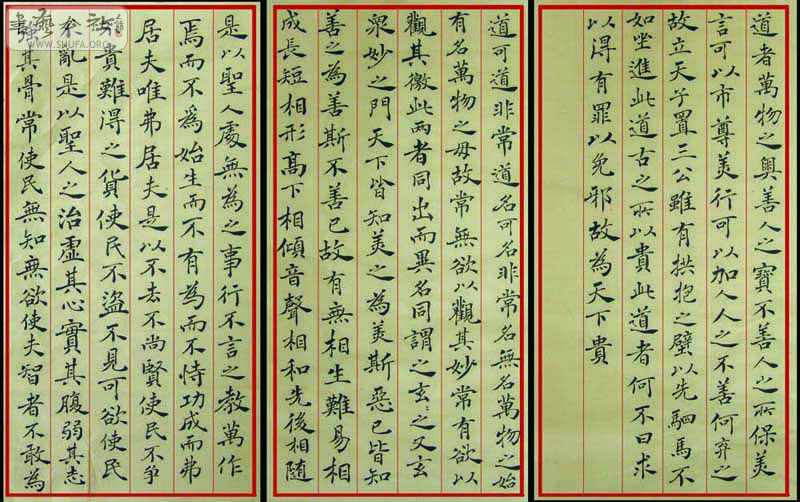 道者萬物之輿善人之寶不善人之所保美
言可以市尊美行可以加人人之不善何弃之
故立天子置三公雖有拱抱之璧以先駟馬不
如坐進此道古之所以貴此道者何不曰求
以得有罪以免邪故為天下貴
道可道非常道名可名非常名無名萬物之始
有名萬物之母故常無欲以觀其妙常有欲以
觀其徼此兩者同出而異名同謂之玄之又玄
眾妙之門天下皆知美之為美斯惡已皆知
善之為善斯不善已故有無相生難易相
成長短相形高下相傾音聲相和先後相隨
是以聖人處無為之事行不言之教萬作
焉而不為始生而不有為而不恃功成而弗
居夫唯弗居夫是以不去不尚賢使民不爭
不貴難得之貨使民不盜不見可欲使民
不亂是以聖人之治虛其心實其腹弱其志
強其骨常使民無知無欲使夫智者不敢為
WWW.SHUFA.ORG